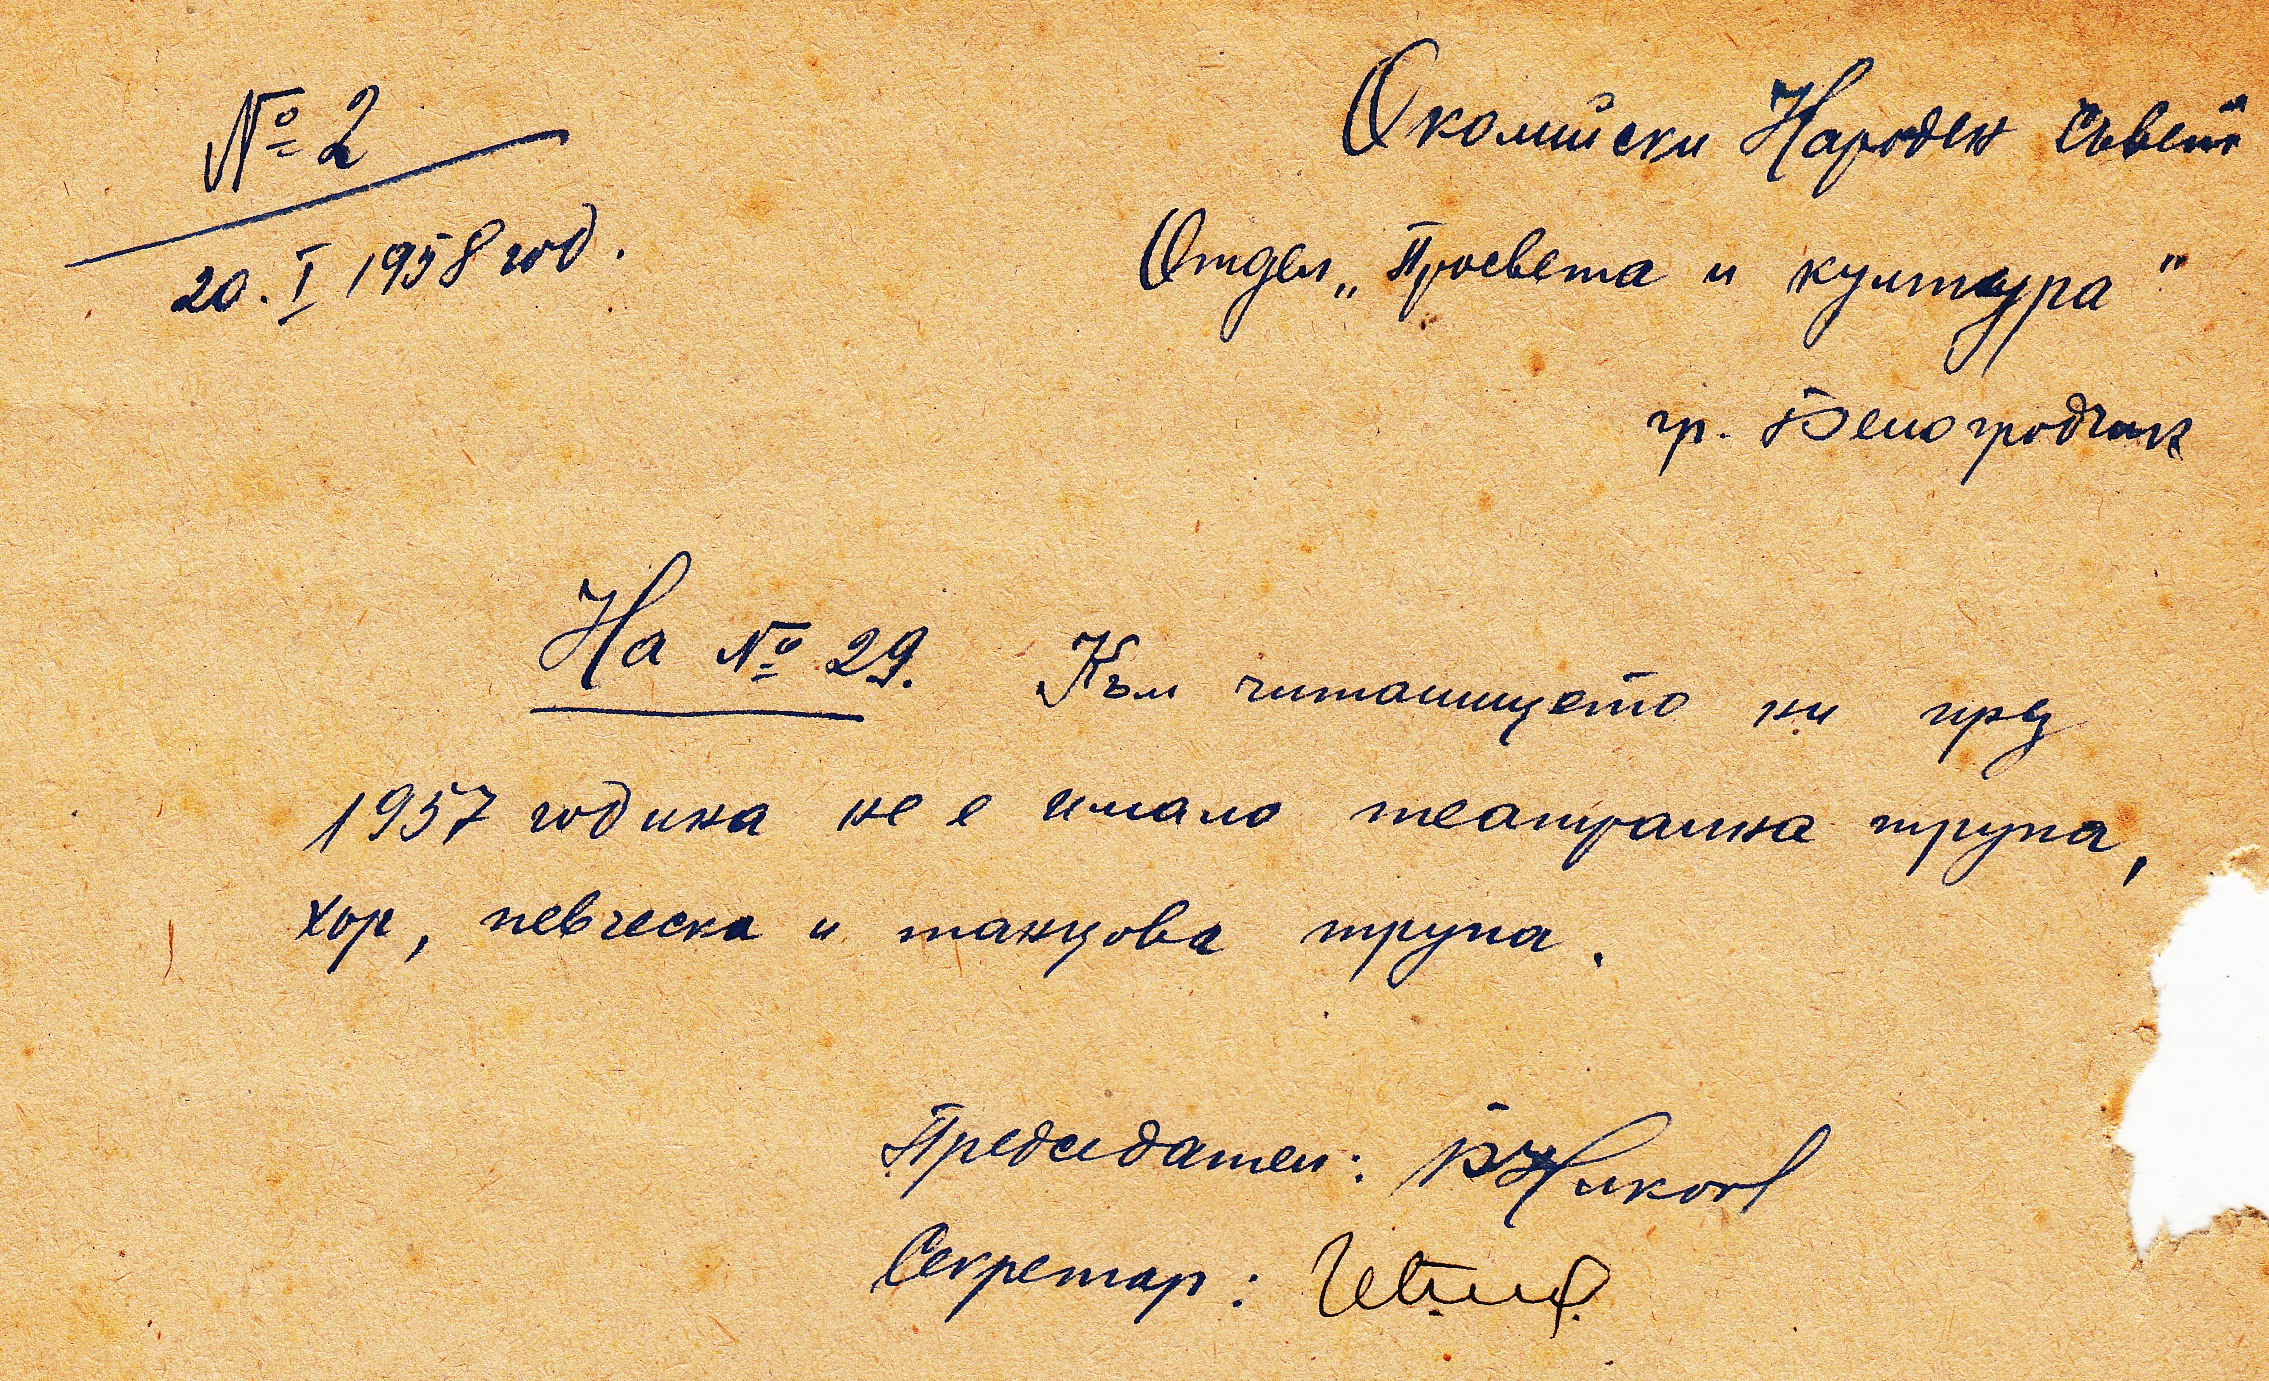 № 2
20. I 1958 год.
Околийски Народен Съвет
Отдел „Просвета и култура"
гр. Белоградчик
На № 29. Към читалището ни през
1957 година не е имало театрална трупа,
хор, певческа и танцова трупа.
Председател: В Николов
Секретар: